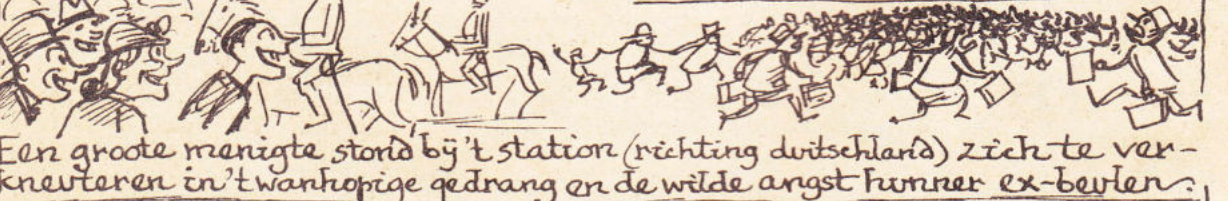 Een groote menigte stond bij 't station (richting duitschland) zich te ver-
kneuteren in 't wanhopige gedrang en de wilde angst hunner ex-beulen.